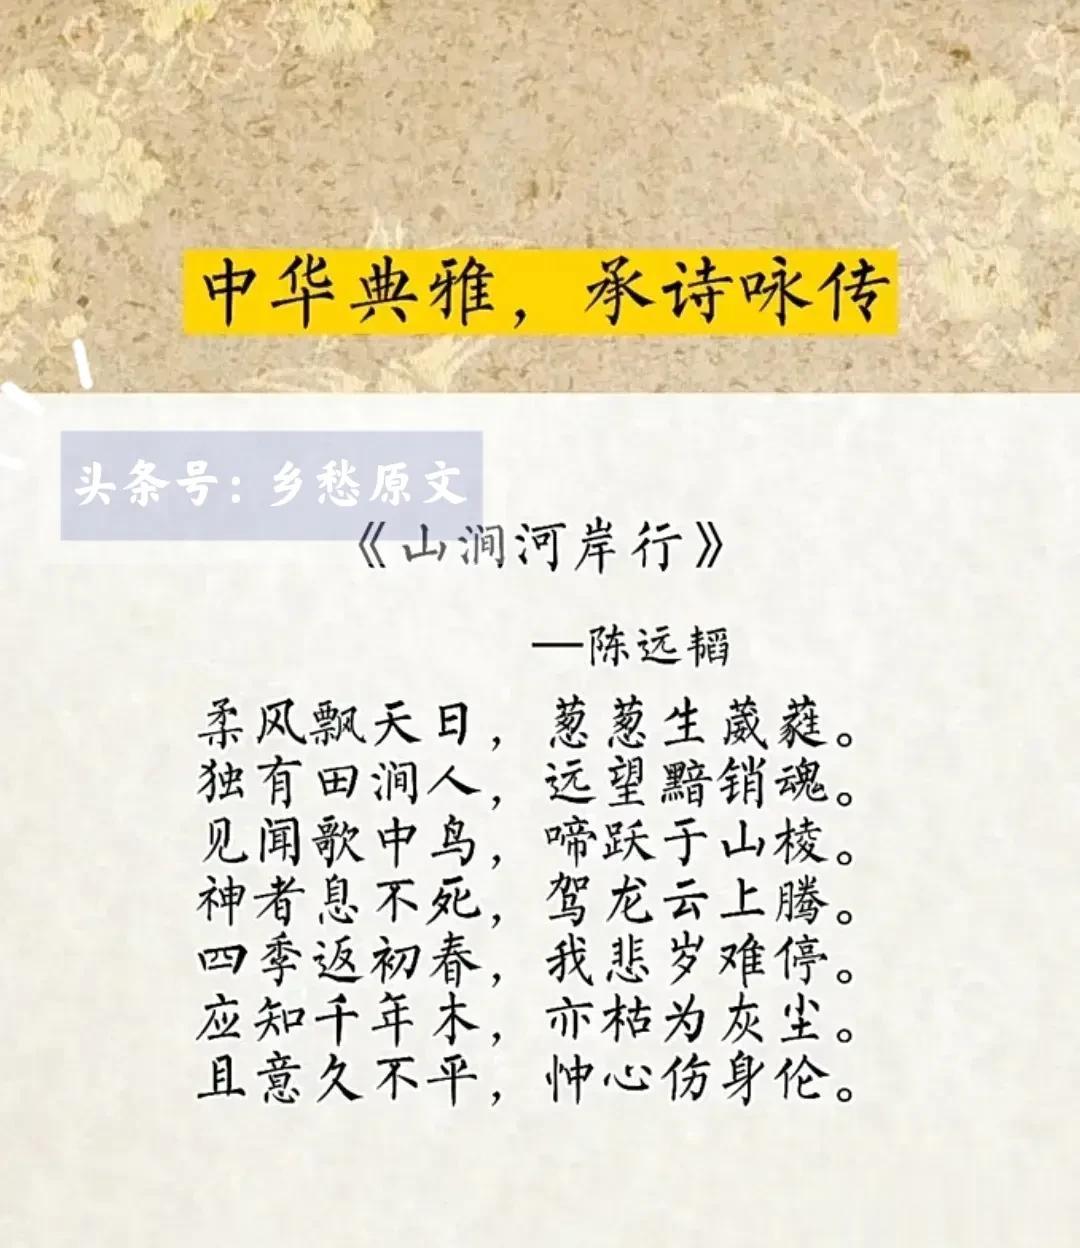 中华典雅，承诗咏传
头条号：乡愁原文
《山涧河岸行》
—陈远韬
柔风飘天日，葱葱生葳蕤。
独有田涧人，远望黯销魂。
见闻歌中鸟，啼跃于山棱。
神者息不死，驾龙云上腾。
四季返初春，我悲岁难停。
应知千年木，亦枯为灰尘。
且意久不平，忡心伤身伦。